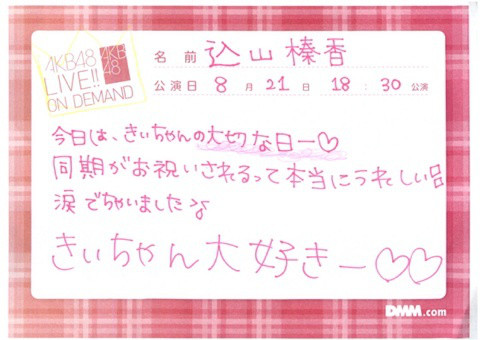 AKB48
LIVE!!
ON DEMAND
AKB
48
名前 込山榛香
公演日 8月21日 18:30公演
今日は、きぃちゃんの大切な日ー♡
同期がお祝いされるって本当にうれしい
涙でちゃいました
きぃちゃん大好きー♡♡
DMM.com